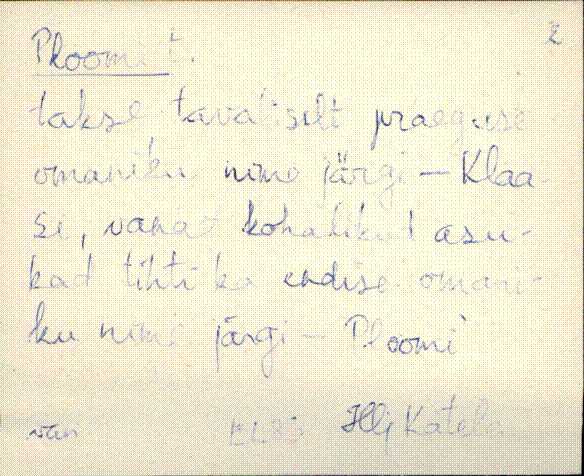 2
Ploomi t.
takse tavaliselt praeguse
omaniku nime järgi – Klaa-
si, vanad kohalikud asu-
kad tihti ka endise omani-
ku nime järgi – Ploomi
van